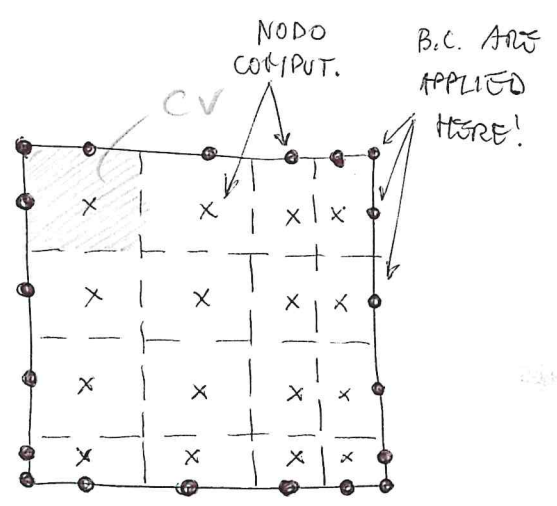 NODO
COMPUT.
B.C. ARE
APPLIED
HERE!
CV